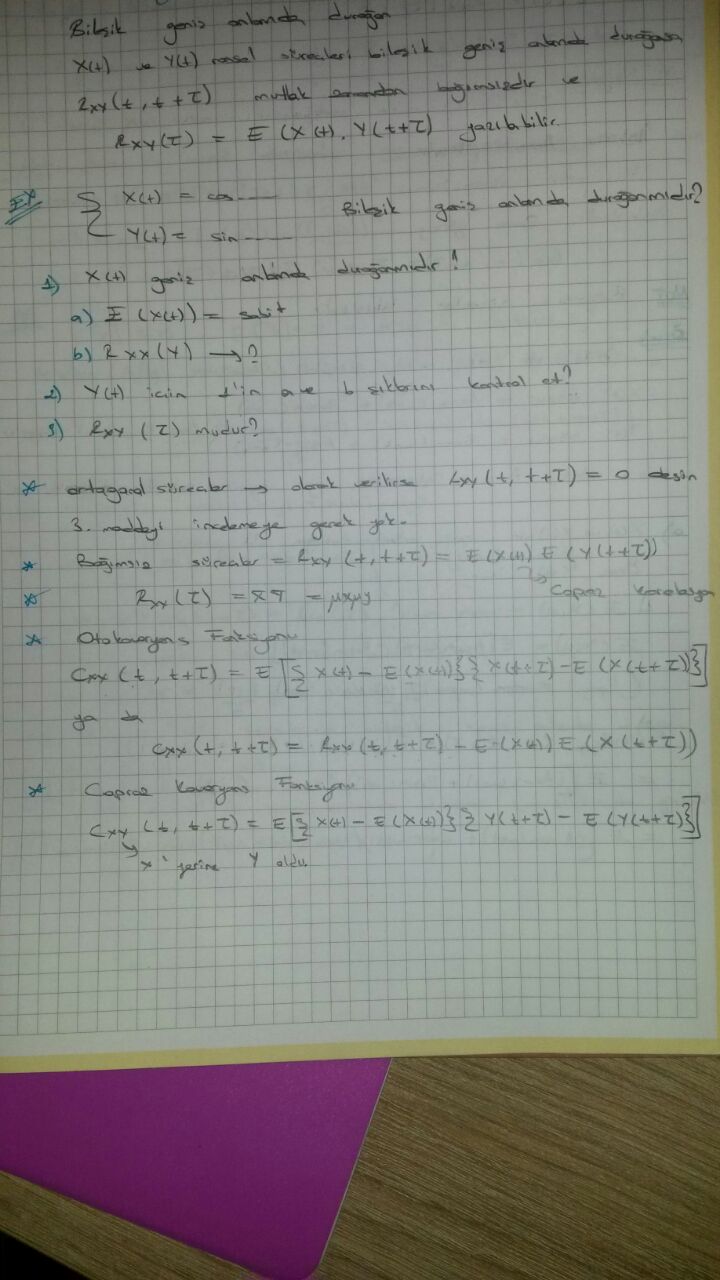 Bileşik geniş anlamda durağan
X(t) ve Y(t) rassal süreçleri bileşik geniş anlamda durağansa
Rxy(t, t+τ) mutlak zamandan bağımsızdır ve
Rxy(τ) = E (X(t). Y(t+τ) yazılabilir.
EX { X(t) = cos —— Bileşik geniş anlamda durağanmıdır?
Y(t) = sin ——
1) X(t) geniş anlamında durağanmıdır!
a) E (X(t)) = sabit
b) Rxx(Y) → ?
2) Y(t) için 1'in a ve b şıklarını kontrol et?
3) Rxy (τ) mudur?
* ortagonal süreçler → olarak verilirse Rxy(t, t+τ) = 0 desin
3. maddeyi incelemeye gerek yok.
* Bağımsız süreçler = Rxy (t, t+τ) = E(X(t)) E (Y(t+τ))
* Rxy (τ) = x̄ ȳ = μxμy Çapraz Korelasyon
* Otokovaryans Fonksiyonu
Cxx (t, t+τ) = E [{X(t) - E (X(t)} {X(t+τ) - E (X(t+τ))}]
ya da
Cxx(t, t+τ) = Rxx(t, t+τ) - E (X(t)) E (X(t+τ))
* Çapraz Kovaryans Fonksiyonu
Cxy (t, t+τ) = E[{X(t) - E (X(t)} {Y(t+τ) - E (Y(t+τ)}]
x' yerine Y oldu.